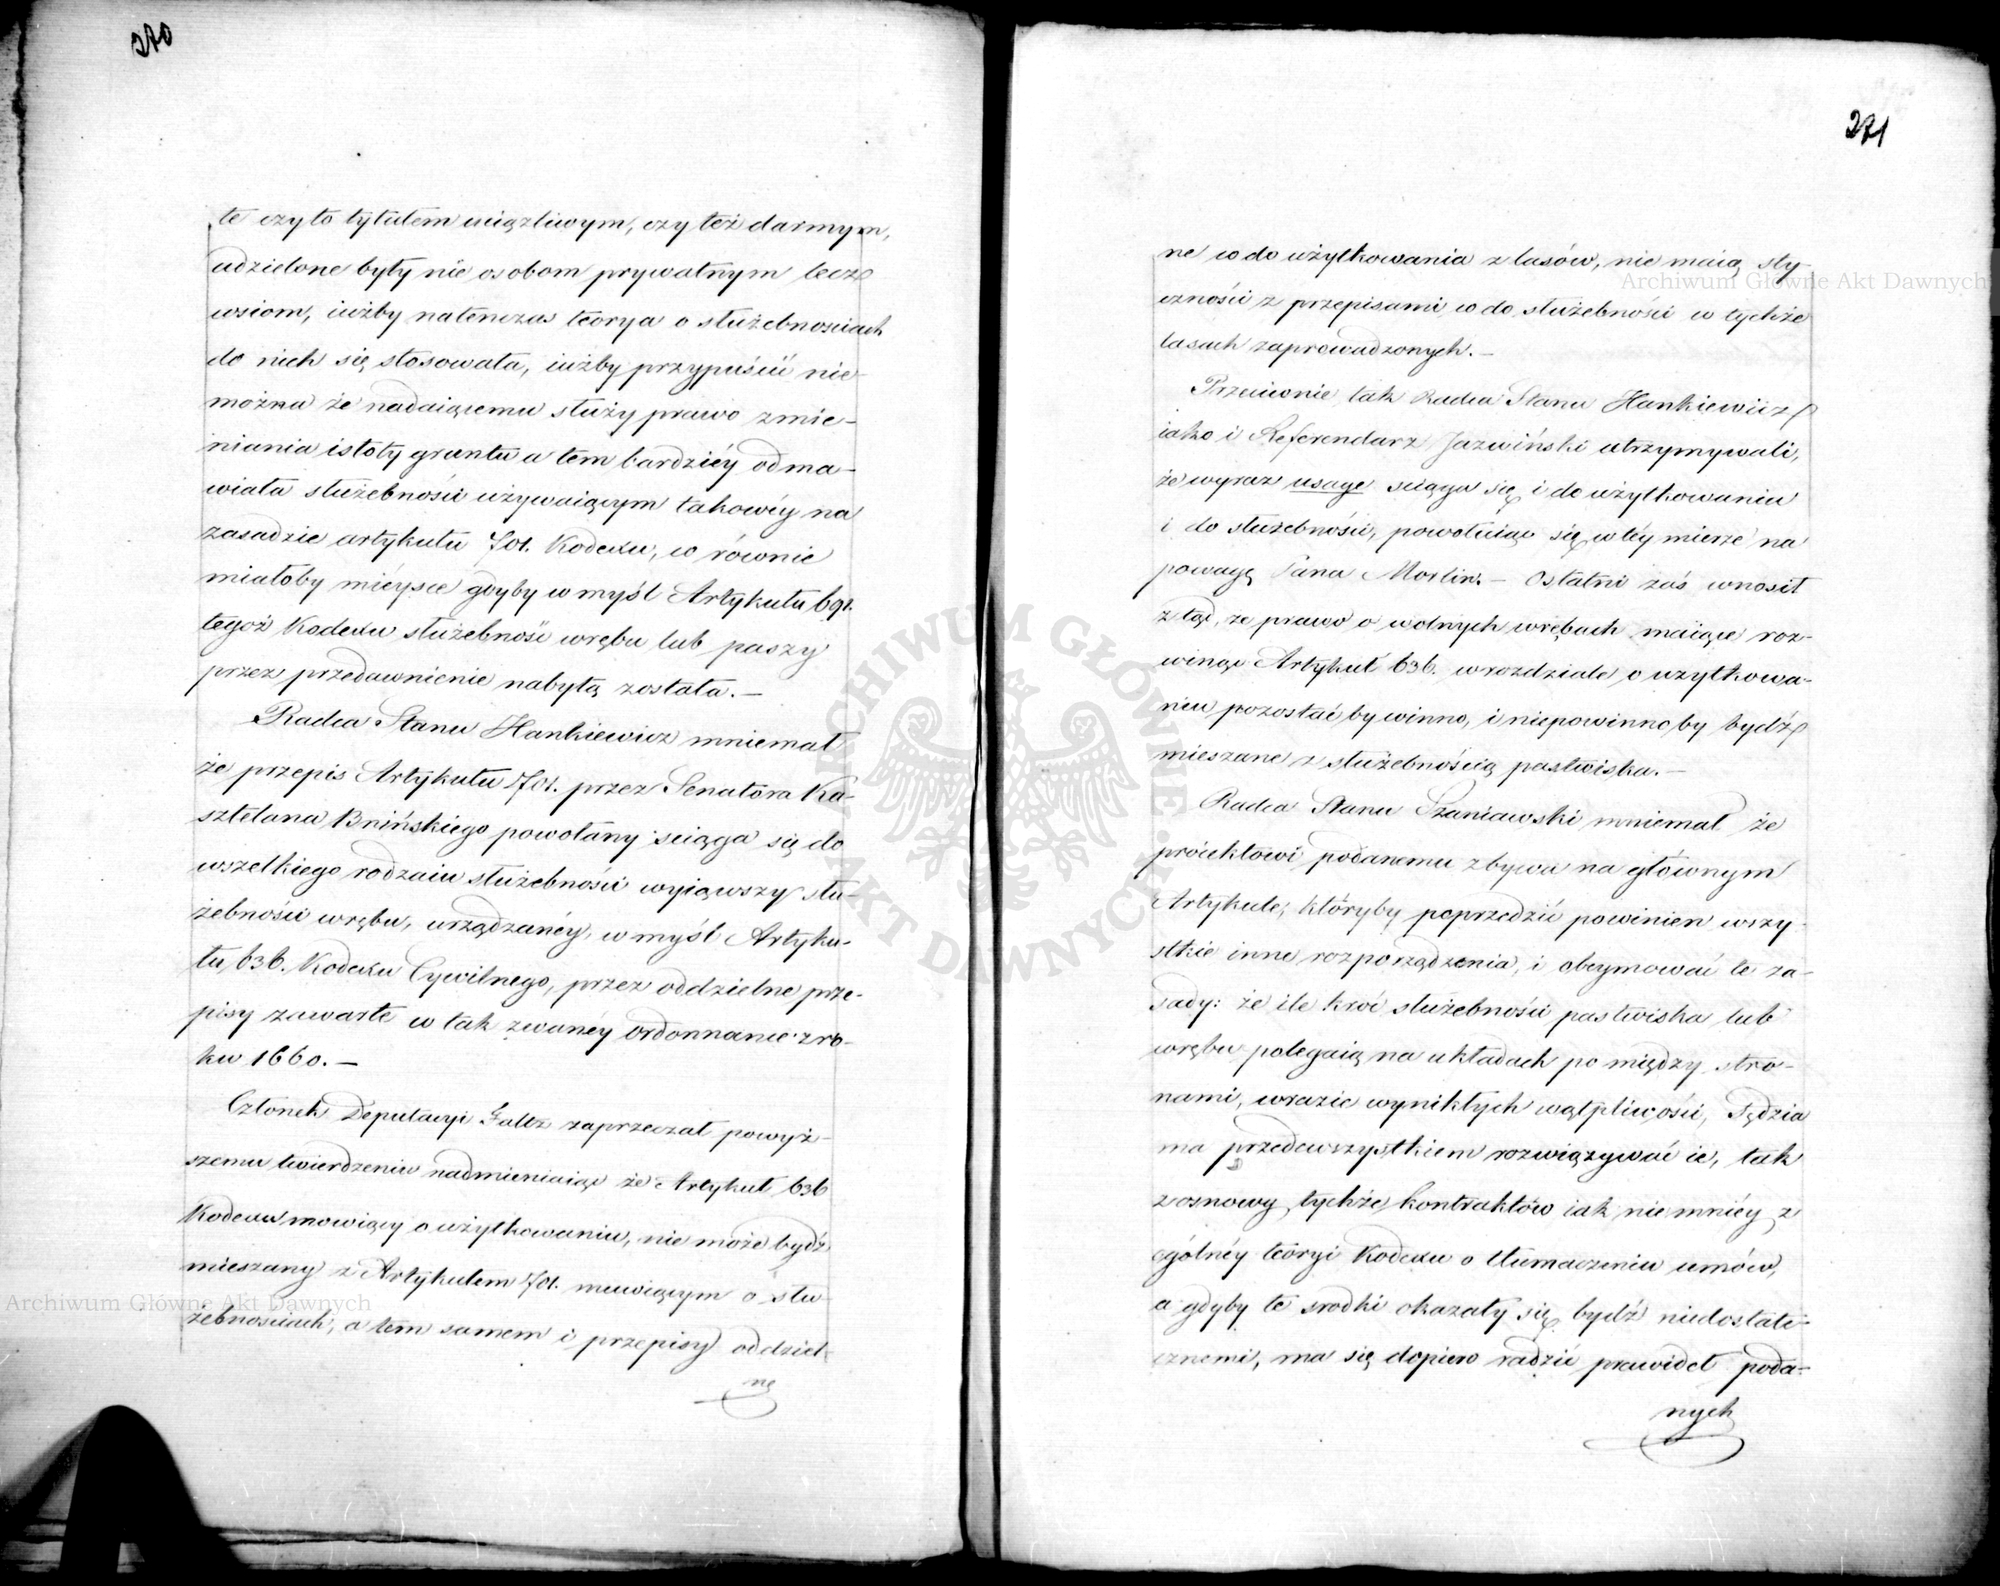 270
te czyto tytułem uciążliwym, czy też darmym,
udzielone były nie osobom prywatnym lecz
wsiom, iużby natenczas teorya o służebnościach
do nich się stosowała, iużby przypuścić nie
można że nadaiącemu służy prawo zmie-
niania istoty gruntu a tem bardziéy odma-
wiała służebności używaiącym takowéy na
zasadzie artykułu 701. Kodexu, co równie
miałoby mieysce gdyby w myśl Artykułu 691.
tegoż Kodexu służebność wrębu lub paszy
przez przedawnienie nabytą została.—
Radca Stanu Hankiewicz mniemał
że przepis Artykułu 701. przez Senatora Ka-
sztelana Bnińskiego powołany sciąga się do
wszelkiego rodzaiu służebności wyiąwszy słu-
żebności wrębu, urządzanéy, w myśl Artyku-
łu 636. Kodexu Cywilnego, przez oddzielne prze-
pisy zawarte w tak zwanéy Ordonnance z ro-
ku 1660.—
Członek Deputacyi Galtz zaprzeczał powyż-
szemu twierdzeniu nadmieniaiąc że Artykuł 636
Kodexu mowiący o użytkowaniu, nie może bydź
mieszany z Artykułem 701. muwiącym o słu-
żebnosciach, a tém samem i przepisy oddziel-
ne
271
ne co do użytkowania z lasów, nie maią sty-
czności z przepisami co do służebności w tychże
lasach zaprowadzonych.—
Przeciwnie tak Radca Stanu Hankiewicz
iako i Referendarz Jazwiński utrzymywali,
że wyraz usage sciąga się i do użytkowania
i do służebności, powołuiąc się w téy mierze na
powagę Pana Merlin.— Ostatni zaś wnosił
z tąd, że prawo o wolnych wrębach maiące roz-
winąc Artykuł 636. w rozdziale o uzytkowa-
niu pozostać by winno, i niepowinno by bydź
mieszane z służebnością pastwiska.—
Radca Stanu Szaniawski mniemał że
proiektowi podanemu zbywa na głównym
Artykule, któryby poprzedzić powinien wszy-
stkie inne rozporządzenia, i obeymować te za-
sady: że ile kroć służebności pastwiska lub
wrębu polegaią na układach po między stro-
nami, w razie wynikłych wątpliwości, Sędzia
ma przedewszystkiem rozwiązywać ie, tak
z osnowy tychże kontraktów iak nie mniéy z
ogólnéy teoryi Kodexu o tłumaczeniu umów,
a gdyby te srodki okazały się bydź niedostate-
cznemi, ma się dopiero radzić prawideł poda-
nych
Archiwum Główne Akt Dawnych
Archiwum Główne Akt Dawnych
ARCHIWUM GŁÓWNE
AKT DAWNYCH